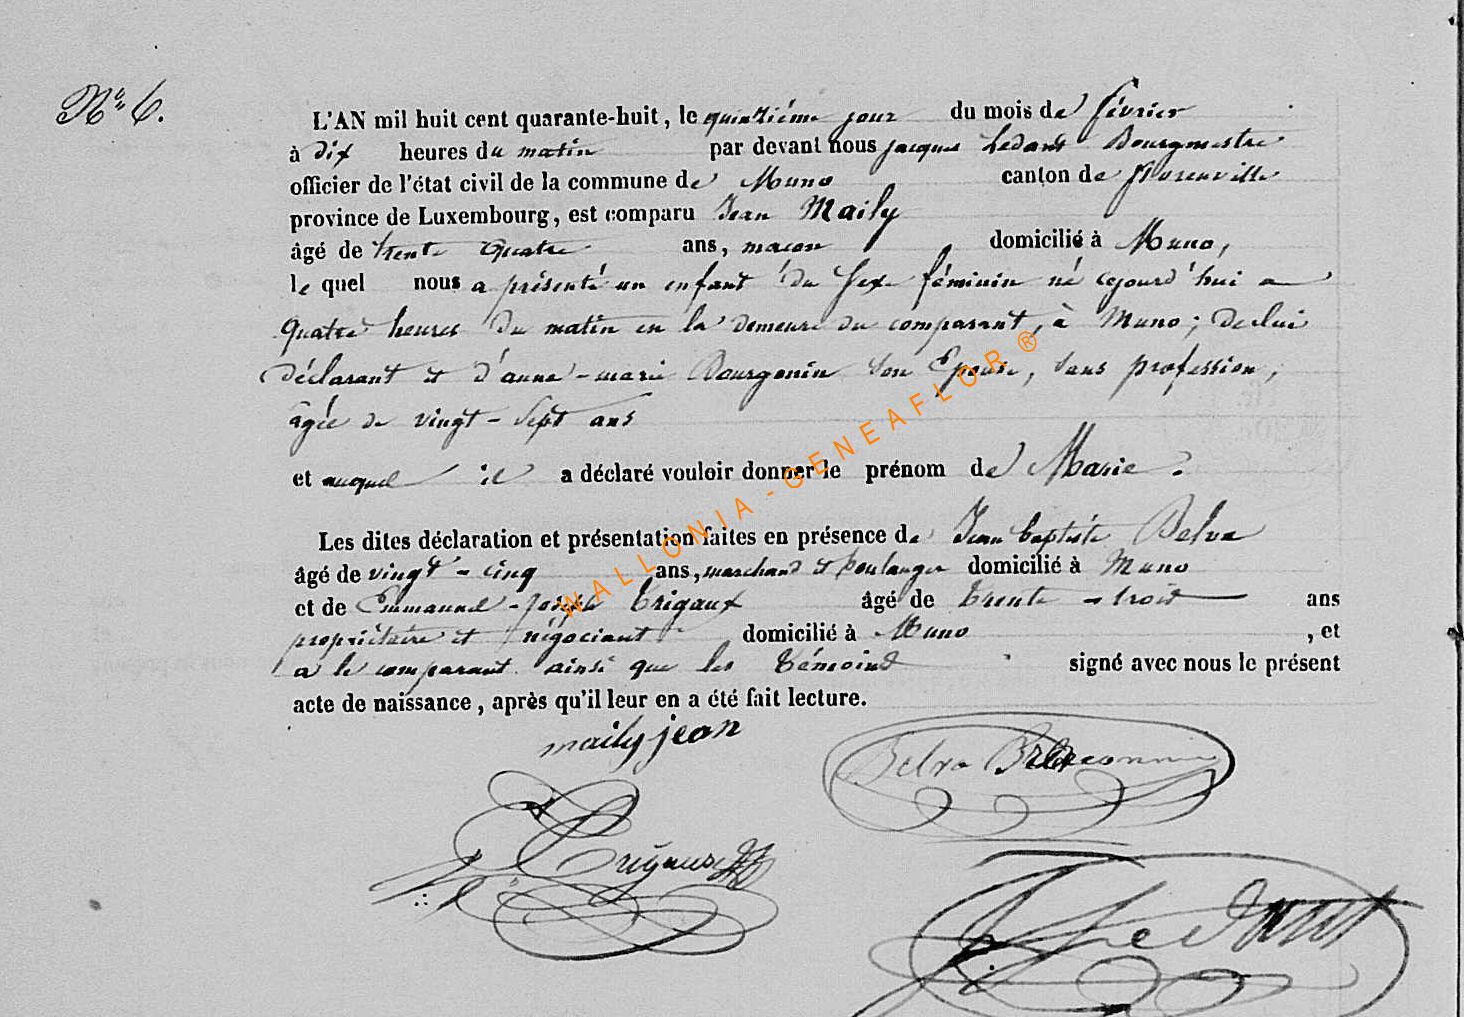 N° 6.
L'AN mil huit cent quarante-huit, le quinzième jour du mois de février
à dix heures du matin par devant nous jacques Ledant Bourgmestre
officier de l'état civil de la commune de Muno canton de florenville
province de Luxembourg, est comparu Jean Maily
âgé de trente quatre ans, macon domicilié à Muno,
le quel nous a présenté un enfant du sexe féminin né cejourd'hui a
quatre heures du matin en la demeure du comparant, à Muno; de lui
déclarant et d'anne-marie Bourgonin son Epouse, sans profession,
âgée de vingt-sept ans
et auquel il a déclaré vouloir donner le prénom de Marie.
Les dites déclaration et présentation faites en présence de Jean baptiste Delva
âgé de vingt-cinq ans, marchand et boulanger domicilié à Muno
et de Emmanuel-joseph Trigaux âgé de trente-trois ans
propriétaire et négociant domicilié à Muno , et
a le comparant ainsi que les témoins signé avec nous le présent
acte de naissance, après qu'il leur en a été fait lecture.
maily jean
Delva
Trigaux
Ledant
WALLONIA-GENEAFLOR®